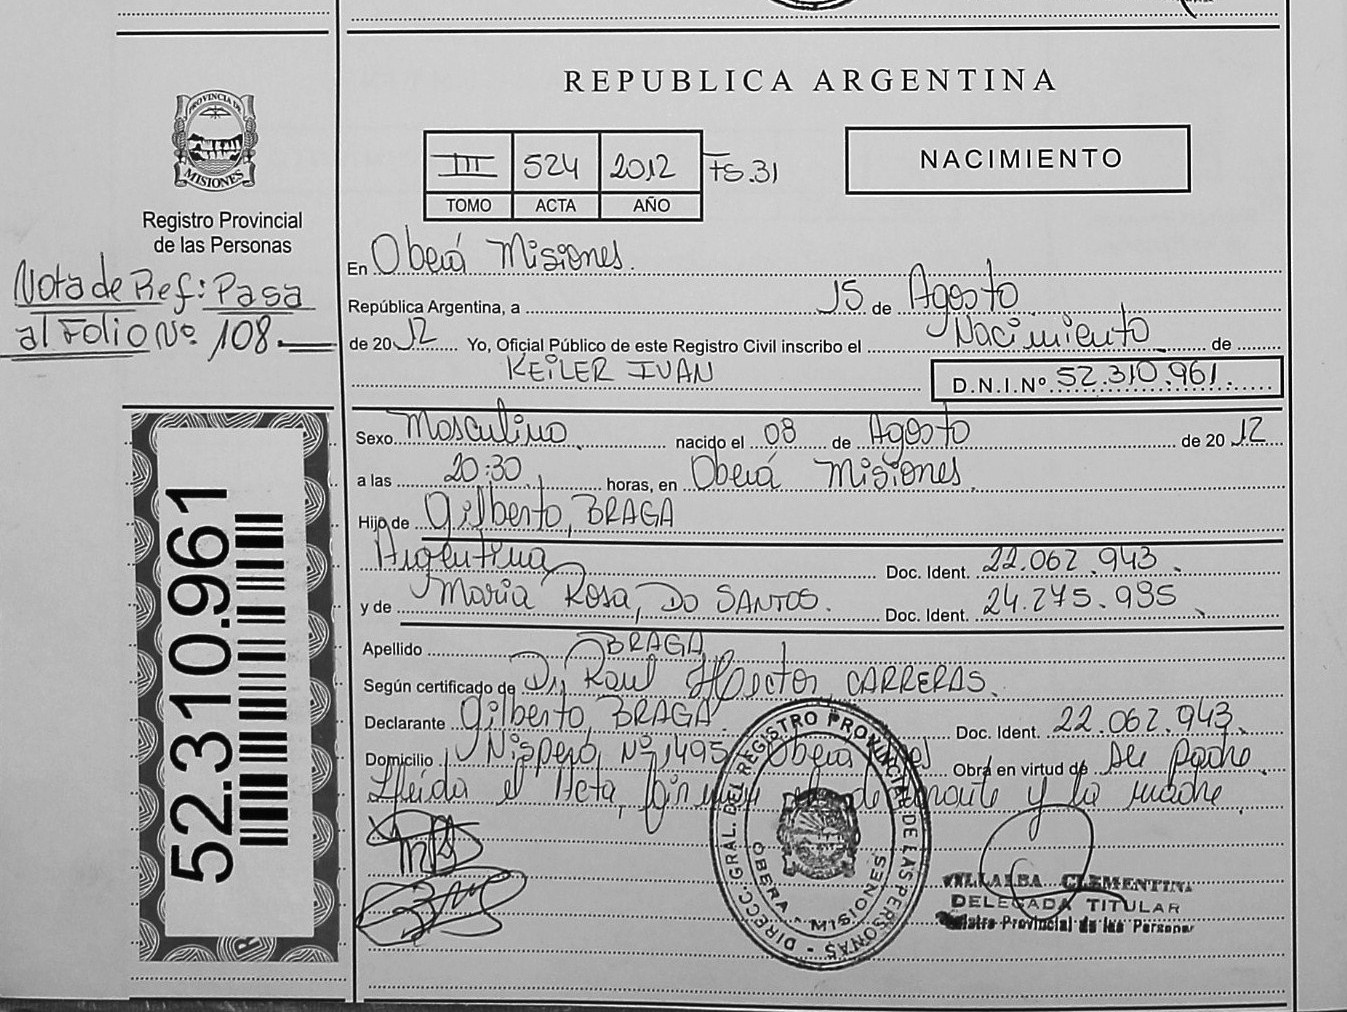 REPUBLICA ARGENTINA
PROVINCIA DE
MISIONES
Registro Provincial
de las Personas
III 524 2012 FS.31
TOMO ACTA AÑO
NACIMIENTO
Nota de Ref: Pasa
al Folio Nº 108
En Oberá Misiones.
República Argentina, a 15 de Agosto
de 2012 Yo, Oficial Público de este Registro Civil inscribo el Nacimiento de
KEILER IVAN D.N.I.Nº 52.310.961.
Sexo Masculino nacido el 08 de Agosto de 2012
a las 20:30 horas, en Oberá Misiones.
Hijo de Gilberto, BRAGA
Argentina Doc. Ident. 22.062.943.
y de Maria Rosa, DO SANTOS. Doc. Ident. 24.275.935
Apellido BRAGA
Según certificado de Dr. Raul Hector CARRERAS.
Declarante Gilberto, BRAGA Doc. Ident. 22.062.943.
Domicilio Nispero, Nº 1495 Oberá Obra en virtud de
Leida el Acta, y la madre
52.310.961
DIRECC. GRAL. DEL REGISTRO PROVINCIAL DE LAS PERSONAS
OBERA - MISIONES
VILLALBA CLEMENTINA
DELEGADA TITULAR
Registro Provincial de las Personas